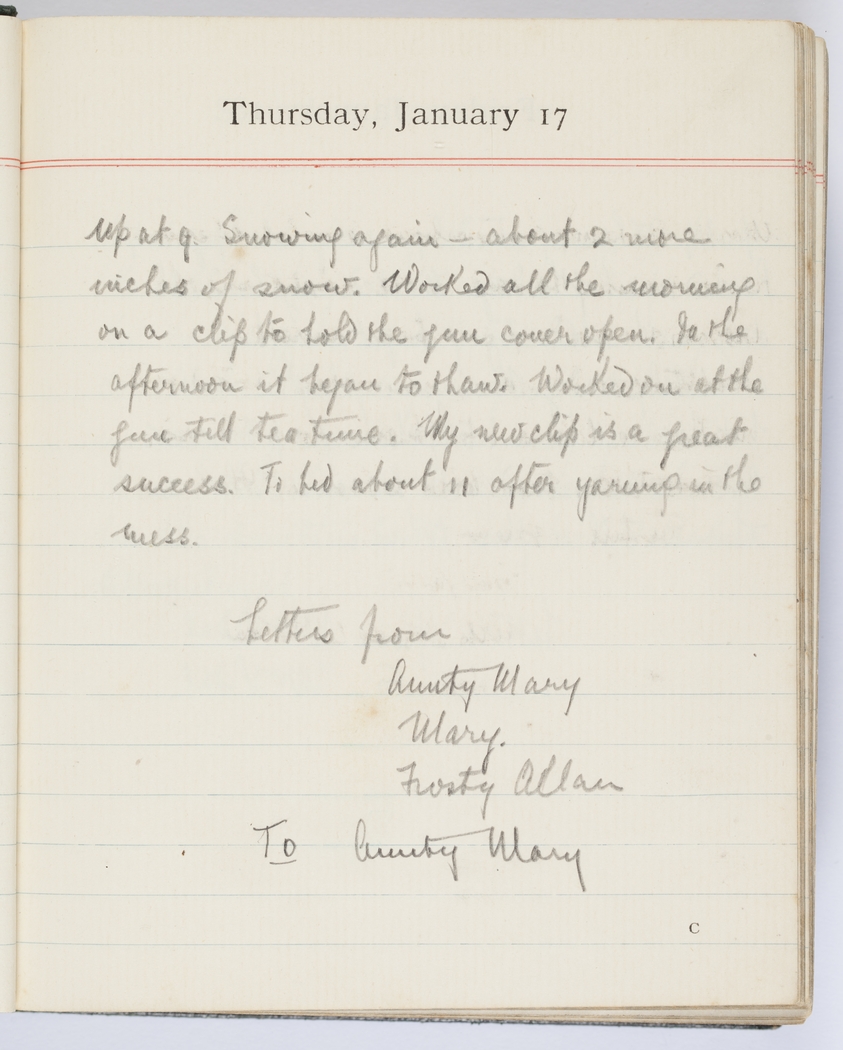 Thursday, January 17
Up at 9. Snowing again – about 2 more
inches of snow. Worked all the morning
on a clip to hold the gun cover open. In the
afternoon it began to thaw. Worked on at the
gun till tea time. My new clip is a great
success. To bed about 11 after yarning in the
mess.
Letters from
Aunty Mary
Mary.
Frosty Allan
To Aunty Mary
C